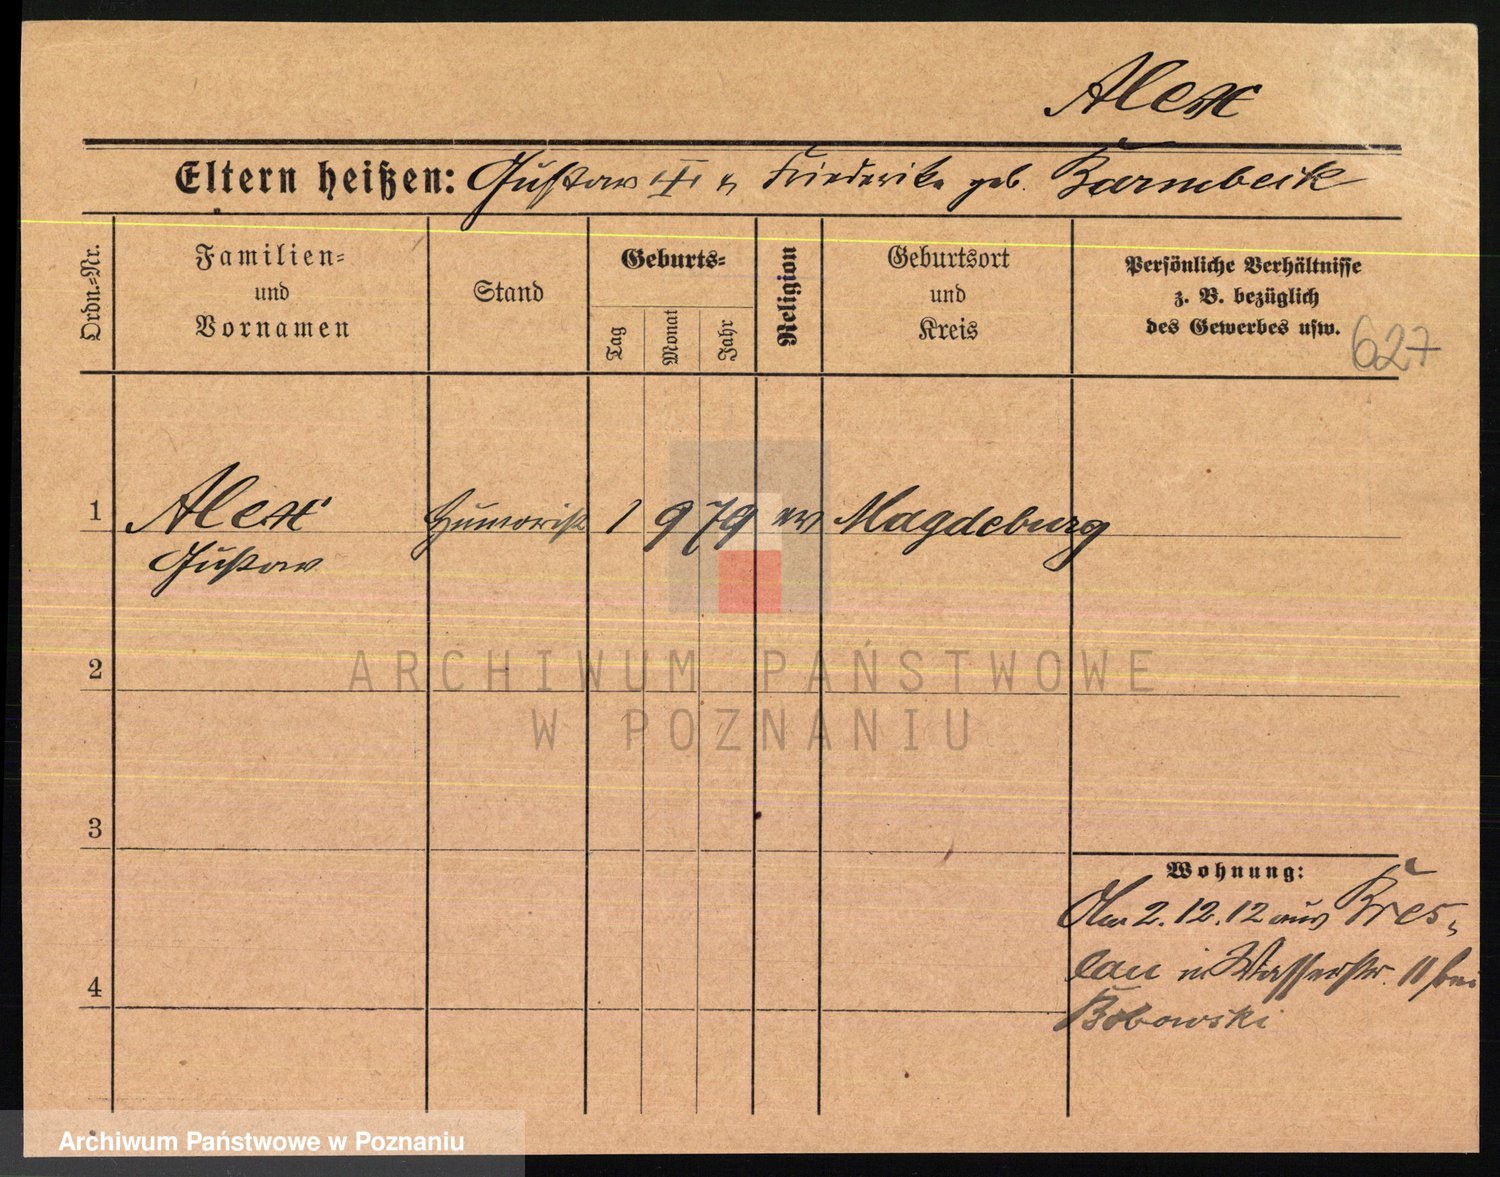 Alex
Eltern heißen: Gustav III u Friederike geb. Barmbeck
Ordn.-Nr.
Familien- und Vornamen
Stand
Geburts-
Tag
Monat
Jahr
Religion
Geburtsort und Kreis
Persönliche Verhältnisse
z. B. bezüglich
des Gewerbes usw.
627
1 Alex Humorist 1 9 79 ev Magdeburg
Gustav
2
3
4
Wohnung:
2.12.12 aus Bres-
lau n Wasserstr. 11 bei
Bobowski
ARCHIWUM PAŃSTWOWE
W POZNANIU
Archiwum Państwowe w Poznaniu